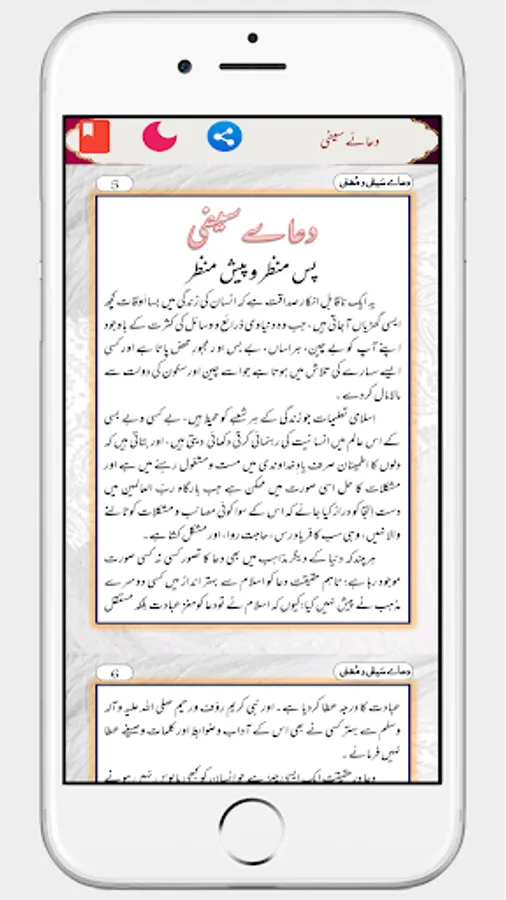 دعائے سیفی
5
دعاے سیفی و مغنی
دعاے سیفی
پس منظر و پیش منظر
یہ ایک ناقابل انکار صداقت ہے کہ انسان کی زندگی میں بسا اوقات کچھ
ایسی گھڑیاں آجاتی ہیں، جب وہ دنیاوی ذرائع و وسائل کی کثرت کے باوجود
اپنے آپ کو بے چین، ہراساں، بے بس اور مجبور محض پاتا ہے اور کسی
ایسے سہارے کی تلاش میں ہوتا ہے جو اسے چین اور سکون کی دولت سے
مالا مال کردے۔
اسلامی تعلیمات جو زندگی کے ہر شعبے کو محیط ہیں، بے کسی و بے بسی
کے اس عالم میں انسانیت کی رہنمائی کرتی دکھائی دیتی ہیں، اور بتاتی ہیں کہ
دلوں کا اطمینان صرف یاد خداوندی میں مست و مشغول رہنے میں ہے اور
مشکلات کا حل اسی صورت میں ممکن ہے جب بارگاہ ربّ العالمین میں
دست التجا کو دراز کیا جائے کہ اس کے سوا کوئی مصائب و مشکلات کو ٹالنے
والا نہیں، وہی سب کا فریاد رس، حاجت روا، اور مشکل کشا ہے۔
ہر چند کہ دنیا کے دیگر مذاہب میں بھی دعا کا تصور کسی نہ کسی صورت
موجود رہا ہے؛ تاہم حقیقتِ دعا کو اسلام سے بہتر انداز میں کسی دوسرے
مذہب نے پیش نہیں کیا؛ کیوں کہ اسلام نے تو دعا کو مغز عبادت بلکہ مستقل
6
دعاے سیفی و مغنی
عبادت کا درجہ عطا کردیا ہے۔ اور نبی کریم رؤف و رحیم صلی اللہ علیہ وآلہ
وسلم سے بہتر کسی نے بھی اس کے آداب و ضوابط اور کلمات و صیغے عطا
نہیں فرمائے۔
دعا در حقیقت ایک ایسی چیز ہے جو انسان کو کبھی مایوس نہیں ہونے